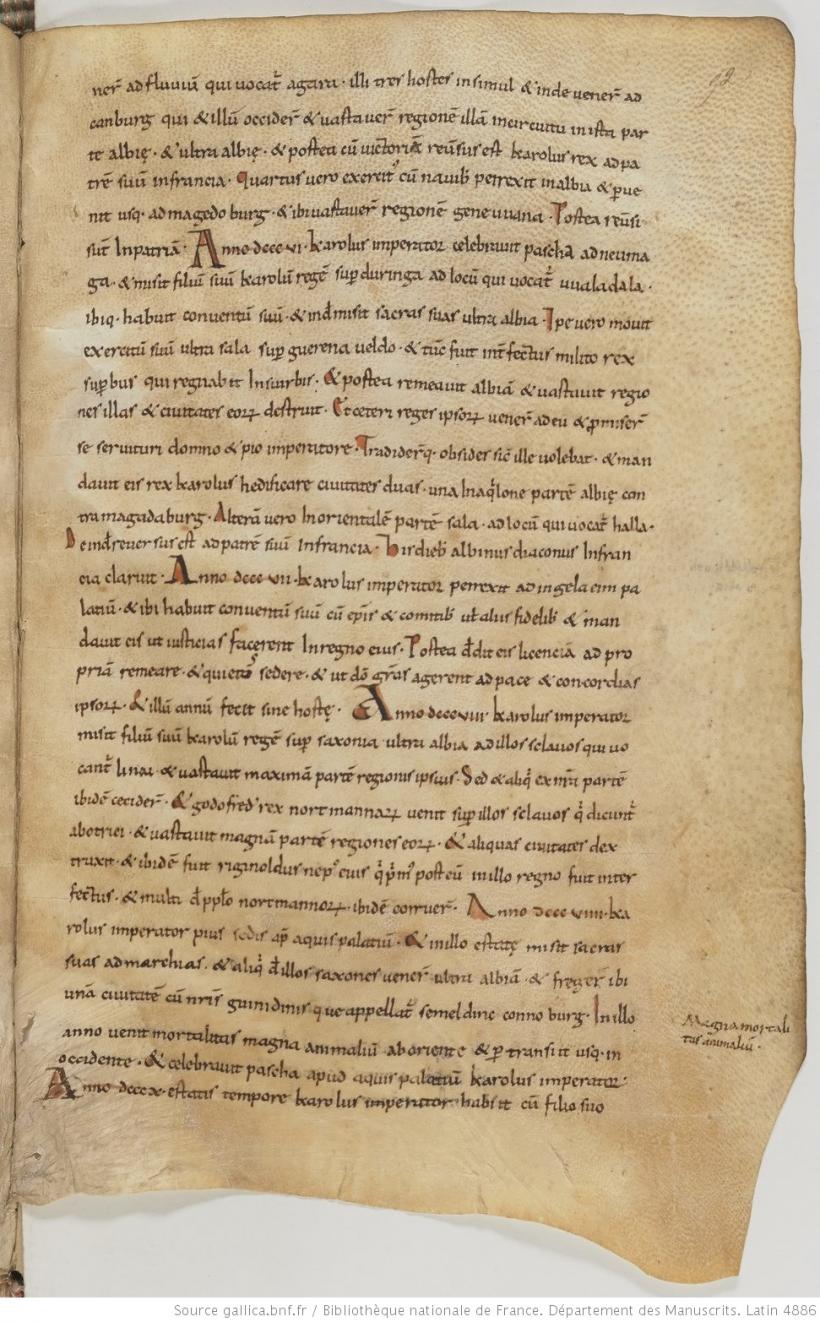 92
ner̄ ad fluviū qui vocat̄ agara · illi tres hostes insimul & inde vener̄ ad
canburg qui & illū occider̄ & vastaver̄ regionē illā incircuitu in ista par
te albię · & ultra albię · & postea cū victoria reūsus est karolus rex ad pa
trē suū in francia · Quartus vero exercit᾿ cū navib; perrexit in albia & ꝑve
nit usq; ad magedoburg · & ibi vastaver̄ regionē genevvana · Postea reūsi
sūt In patriā · Anno dccc·vi· karolus imperator celebravit pascha ad neuma
ga · & misit filiū suū karolū regē suꝑ duringa ad locū qui vocat̄ vvaladala ·
ibiq; habuit conventū suū · & inđ misit scaras suas ultra albia · Ipe vero movit
exercitū suū ultra sala suꝑ guerenaveldo · & tūc fuit int̄fectus milito rex
suꝑbus qui regnabat In siurbis · & postea remeavit albiā & vastavit regio
nes illas & civitates eoꝝ destruit · Et ceteri reges ipsoꝝ vener̄ ad eū & ꝓmiser̄
se servituri domno & pio imperatore · Tradider̄q; obsides sic̄ ille volebat · & man
davit eis rex karolus hedificare civitates duas · una In aq̇lone partē albię con
tra magadaburg · Alterā vero In orientalē partē sala · ad locū qui vocat̄ halla ·
Deinđ reversus est ad patrē suū In francia · his dieb; albinus diaconus In fran
cia claruit · Anno dccc·vii· karolus imperator perrexit ad ingelaeim pa
latiū · & ibi habuit conventū suū cū ep̄is & comitib; vł alius fidelib; & man
davit eis ut iusticias facerent In regno eius · Postea đdit eis licencia ad pro
priā remeare · & quiet᾿ sedere · & ut dō gr̄as agerent ad pace & concordias
ipsoꝝ · & illū annū fecit sine hoste · Anno dccc·viii· karolus imperator
misit filiū suū karolū regē suꝑ saxonia ultra albia ad illos sclavos qui vo
cant̄ linai · & vastavit maximā partē regionis ipsius · Sed & aliq̇ ex nr̄a partē
ibidē cecider̄ · & godofred᾿ rex nortmannaꝝ venit suꝑ illos sclavos q̇ dicunt̄
abotriei · & vastavit magnā partē regiones eoꝝ · & aliquas civitates dex
truxit · & ibidē fuit riginoldus nep᾿ eius q̇ p̄m᾿ post eū in illo regno fuit inter
fectus · & multi đ pplo nortmannoꝝ · ibidē corruer̄ · Anno dccc·viiii· ka
rolus imperator pius sedit ap̄ aquis palatiū · & in illo estate misit scaras
suas ad marchias · & aliq̇ đ illos saxones vener̄ ultra albiā · & freger̄ ibi
unā civitatē cū nr̄is guinidinis que appellat̄ semeldinc connoburg · In illo
anno venit mortalitas magna animaliū ab oriente & ꝑtransiit usq; in
occidente · & celebravit pascha apud aquis palatiū karolus imperator ·
Anno dccc·x· estatis tempore karolus imperator habuit cū filio suo
Magna mortali
tas animaliū ·
Source gallica.bnf.fr / Bibliothèque nationale de France. Département des Manuscrits. Latin 4886